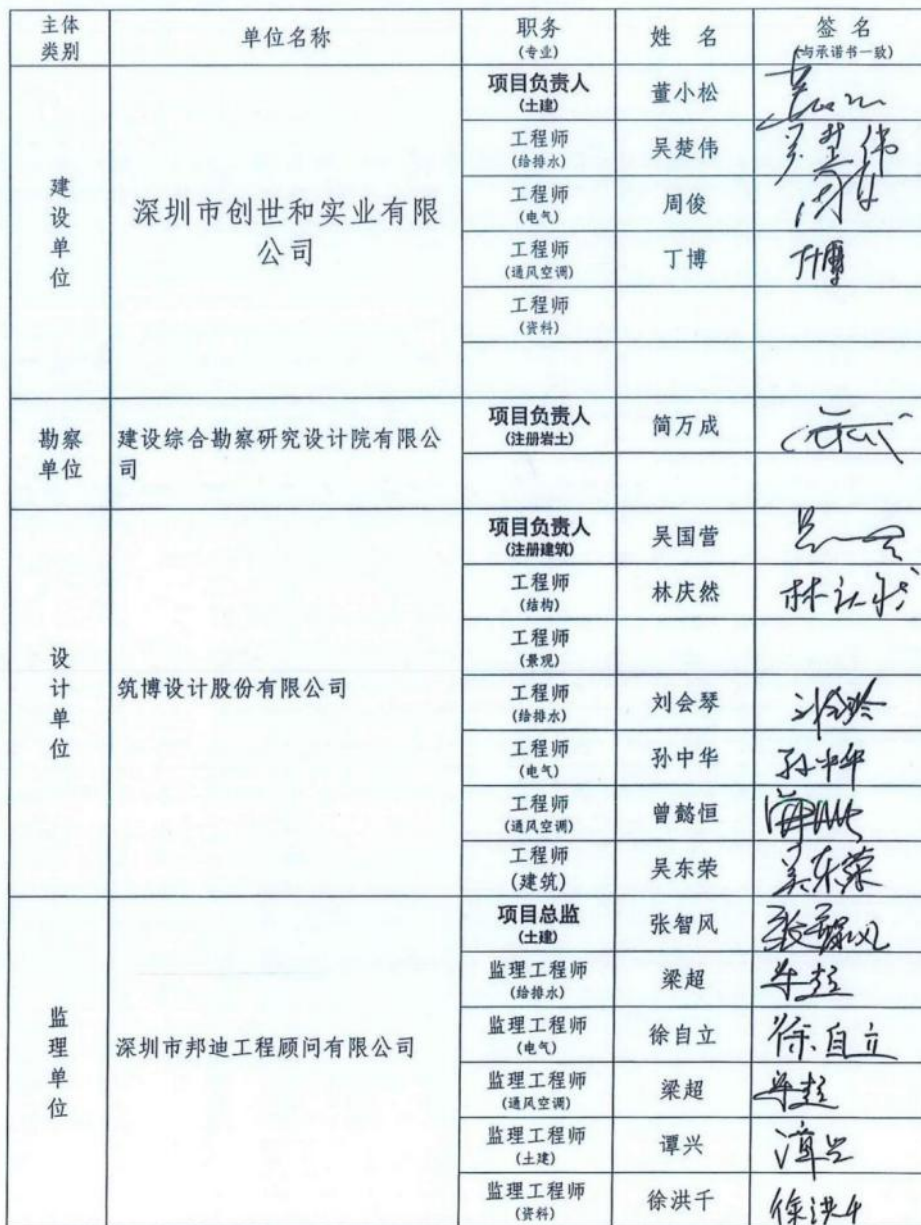 主体
类别
单位名称
职务
(专业)
姓 名
签 名
(与承诺书一致)
建设单位
深圳市创世和实业有限
公司
项目负责人
(土建)
董小松
工程师
(给排水)
吴楚伟
吴楚伟
工程师
(电气)
周俊
工程师
(通风空调)
丁博
丁博
工程师
(资料)
勘察
单位
建设综合勘察研究设计院有限公
司
项目负责人
(注册岩土)
简万成
设计单位
筑博设计股份有限公司
项目负责人
(注册建筑)
吴国营
工程师
(结构)
林庆然
工程师
(景观)
工程师
(给排水)
刘会琴
工程师
(电气)
孙中华
孙中华
工程师
(通风空调)
曾懿恒
工程师
(建筑)
吴东荣
吴东荣
监理单位
深圳市邦迪工程顾问有限公司
项目总监
(土建)
张智风
张智风
监理工程师
(给排水)
梁超
监理工程师
(电气)
徐自立
徐自立
监理工程师
(通风空调)
梁超
监理工程师
(土建)
谭兴
谭兴
监理工程师
(资料)
徐洪千
徐洪千